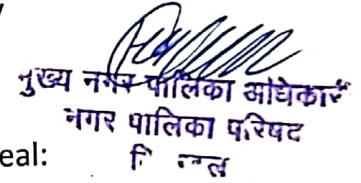 मुख्य नगर पालिका अधिकारी
नगर पालिका परिषद
eal: